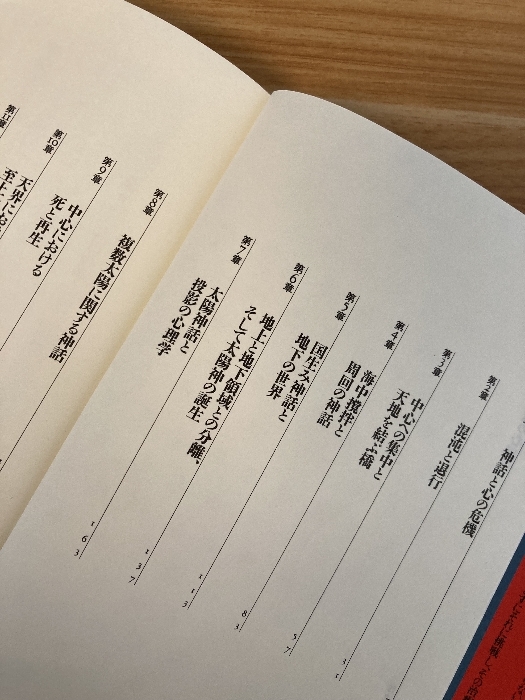 神話と心の危機
第2章
混沌と退行
31
第3章
中心への集中と
天地を結ぶ橋
57
第4章
海中攪拌と
周回の神話
83
第5章
国生み神話と
地下の世界
113
第6章
地上と地下領域との分離、
そして太陽神の誕生
137
第7章
太陽神話と
投影の心理学
163
第8章
複数太陽に関する神話
第9章
中心における
死と再生
第10章
天界にお
至上
第11章